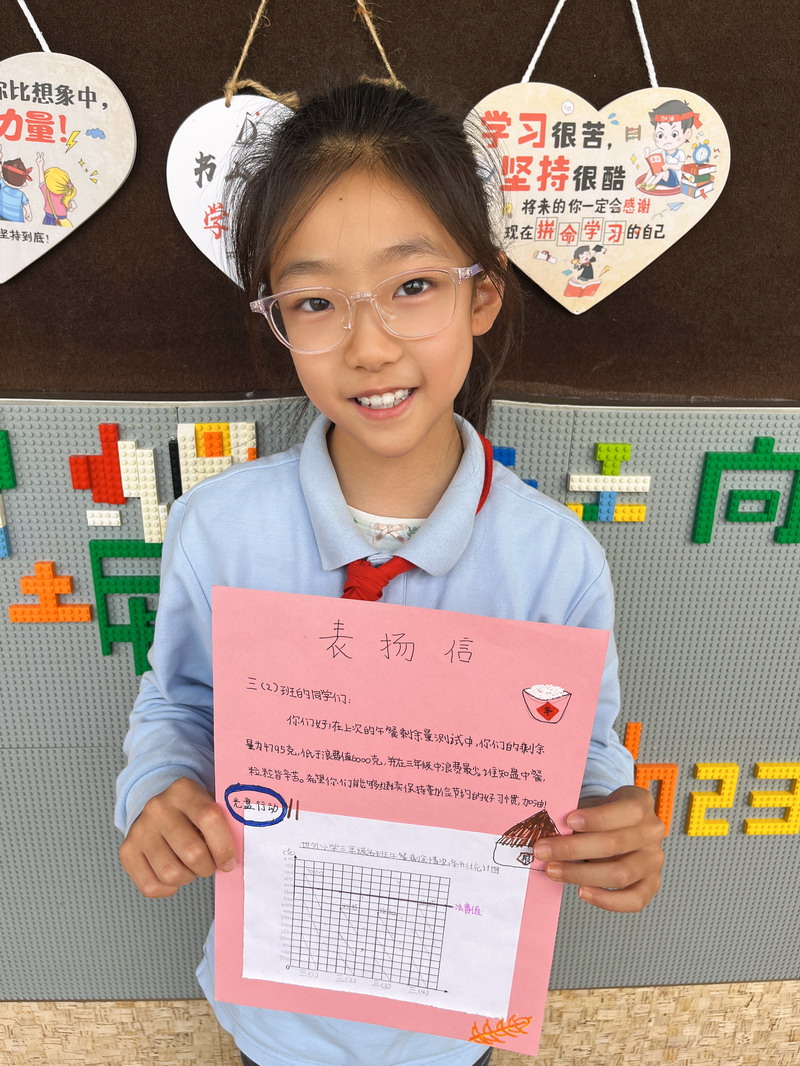 你比想象中,
力量!
坚持到底!
书
学
学习很苦,
坚持很酷
将来的你一定会感谢
现在拼命学习的自己
向
23
表扬信
三(2)班的同学们:
你们好!在上次的午餐剩余量测试中,你们的剩余
量为4795克,低于浪费值6000克,并在三年级中浪费最少!谁知盘中餐,
粒粒皆辛苦。希望你们能够继续保持勤俭节约的好习惯,加油!
光盘行动
浪费值
三(1)
三(2)
三(3)
三(4)